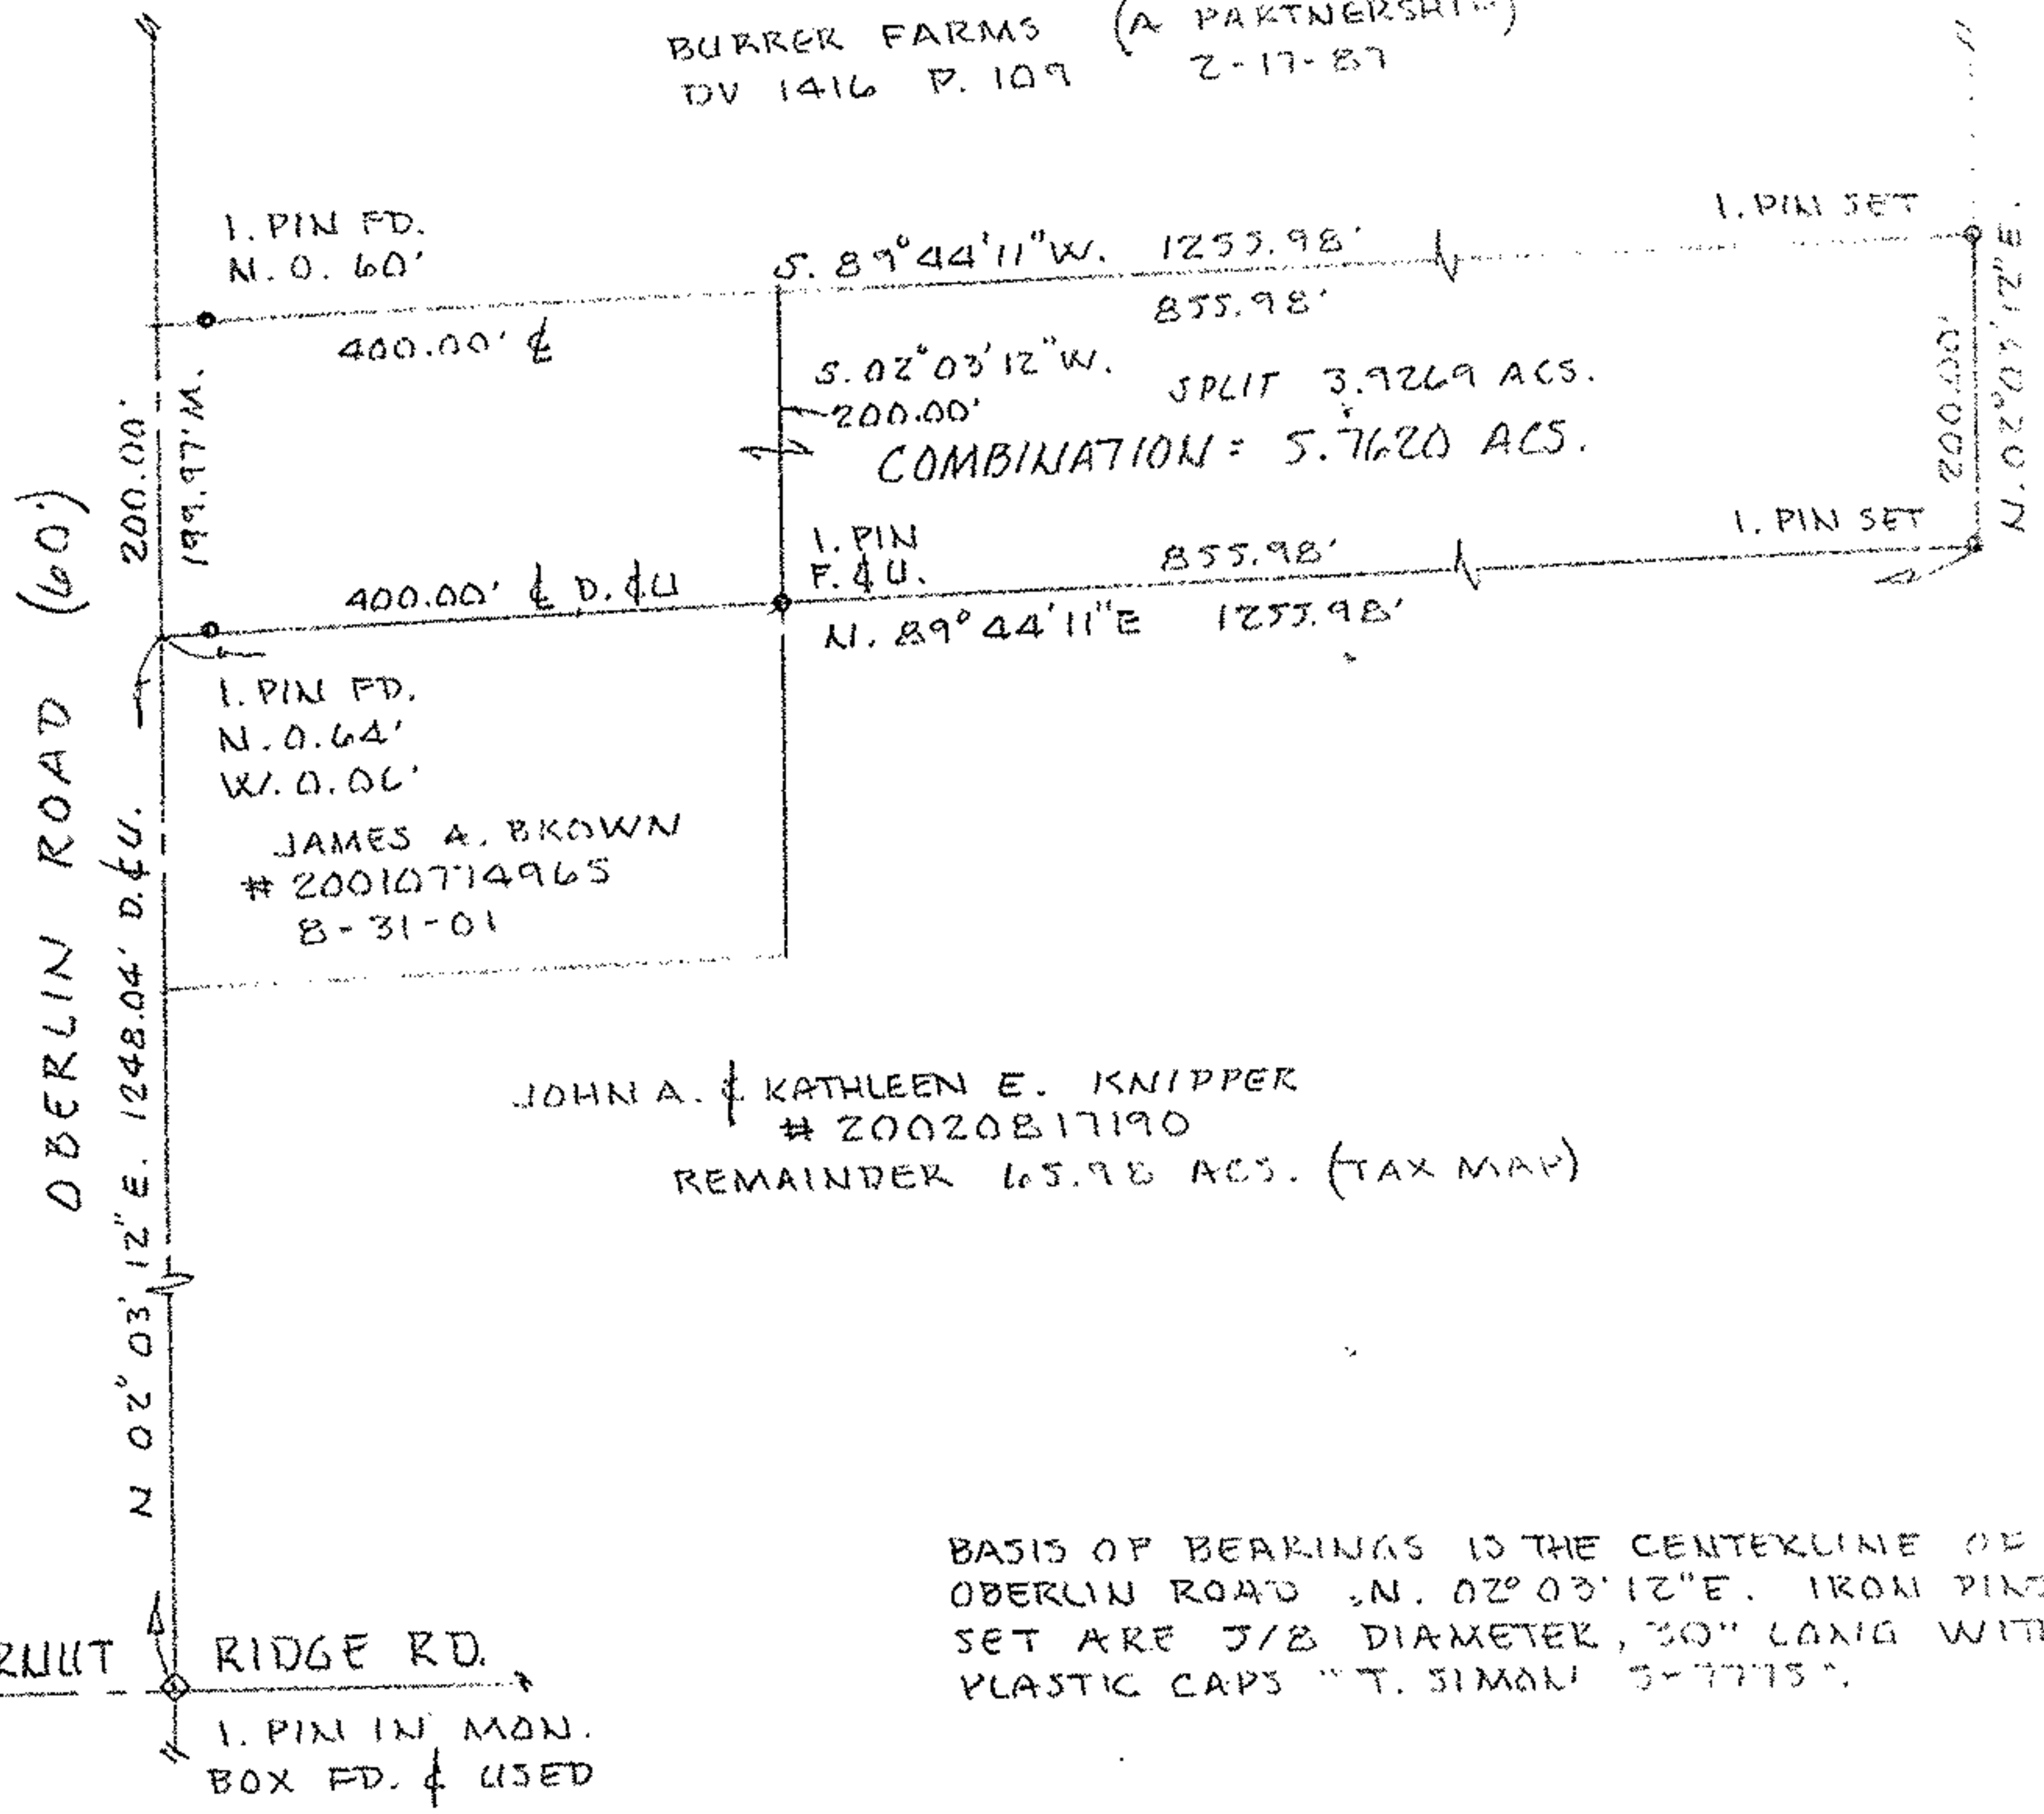 BURRER FARMS (A PARTNERSHIP)
DV 1416 P. 109 2-17-87
I. PIN FD.
N. 0.60'
I. PIN SET
S. 89°44'11"W. 1255.98'
855.98'
400.00' ⅊
200.00'
199.97' M.
S. 02°03'12"W.
200.00'
SPLIT 3.9269 ACS.
COMBINATION = 5.7620 ACS.
N. 02°03'12" E.
200.00'
I. PIN
F. & U.
855.98'
I. PIN SET
400.00' & D. & U
N. 89°44'11"E 1255.98'
OBERLIN ROAD (60')
I. PIN FD.
N. 0.64'
W. 0.06'
JAMES A. BROWN
# 20010774965
8-31-01
N 02° 03' 12" E. 1248.04' D. & U.
JOHN A. & KATHLEEN E. KNIPPER
# 20020817190
REMAINDER 65.98 ACS. (TAX MAP)
BASIS OF BEARINGS IS THE CENTERLINE OF
OBERLIN ROAD N. 02°03'12"E. IRON PINS
SET ARE 5/8 DIAMETER, 30" LONG WITH
PLASTIC CAPS "T. SIMON S-7775".
RNUT RIDGE RD.
I. PIN IN MON.
BOX FD. & USED